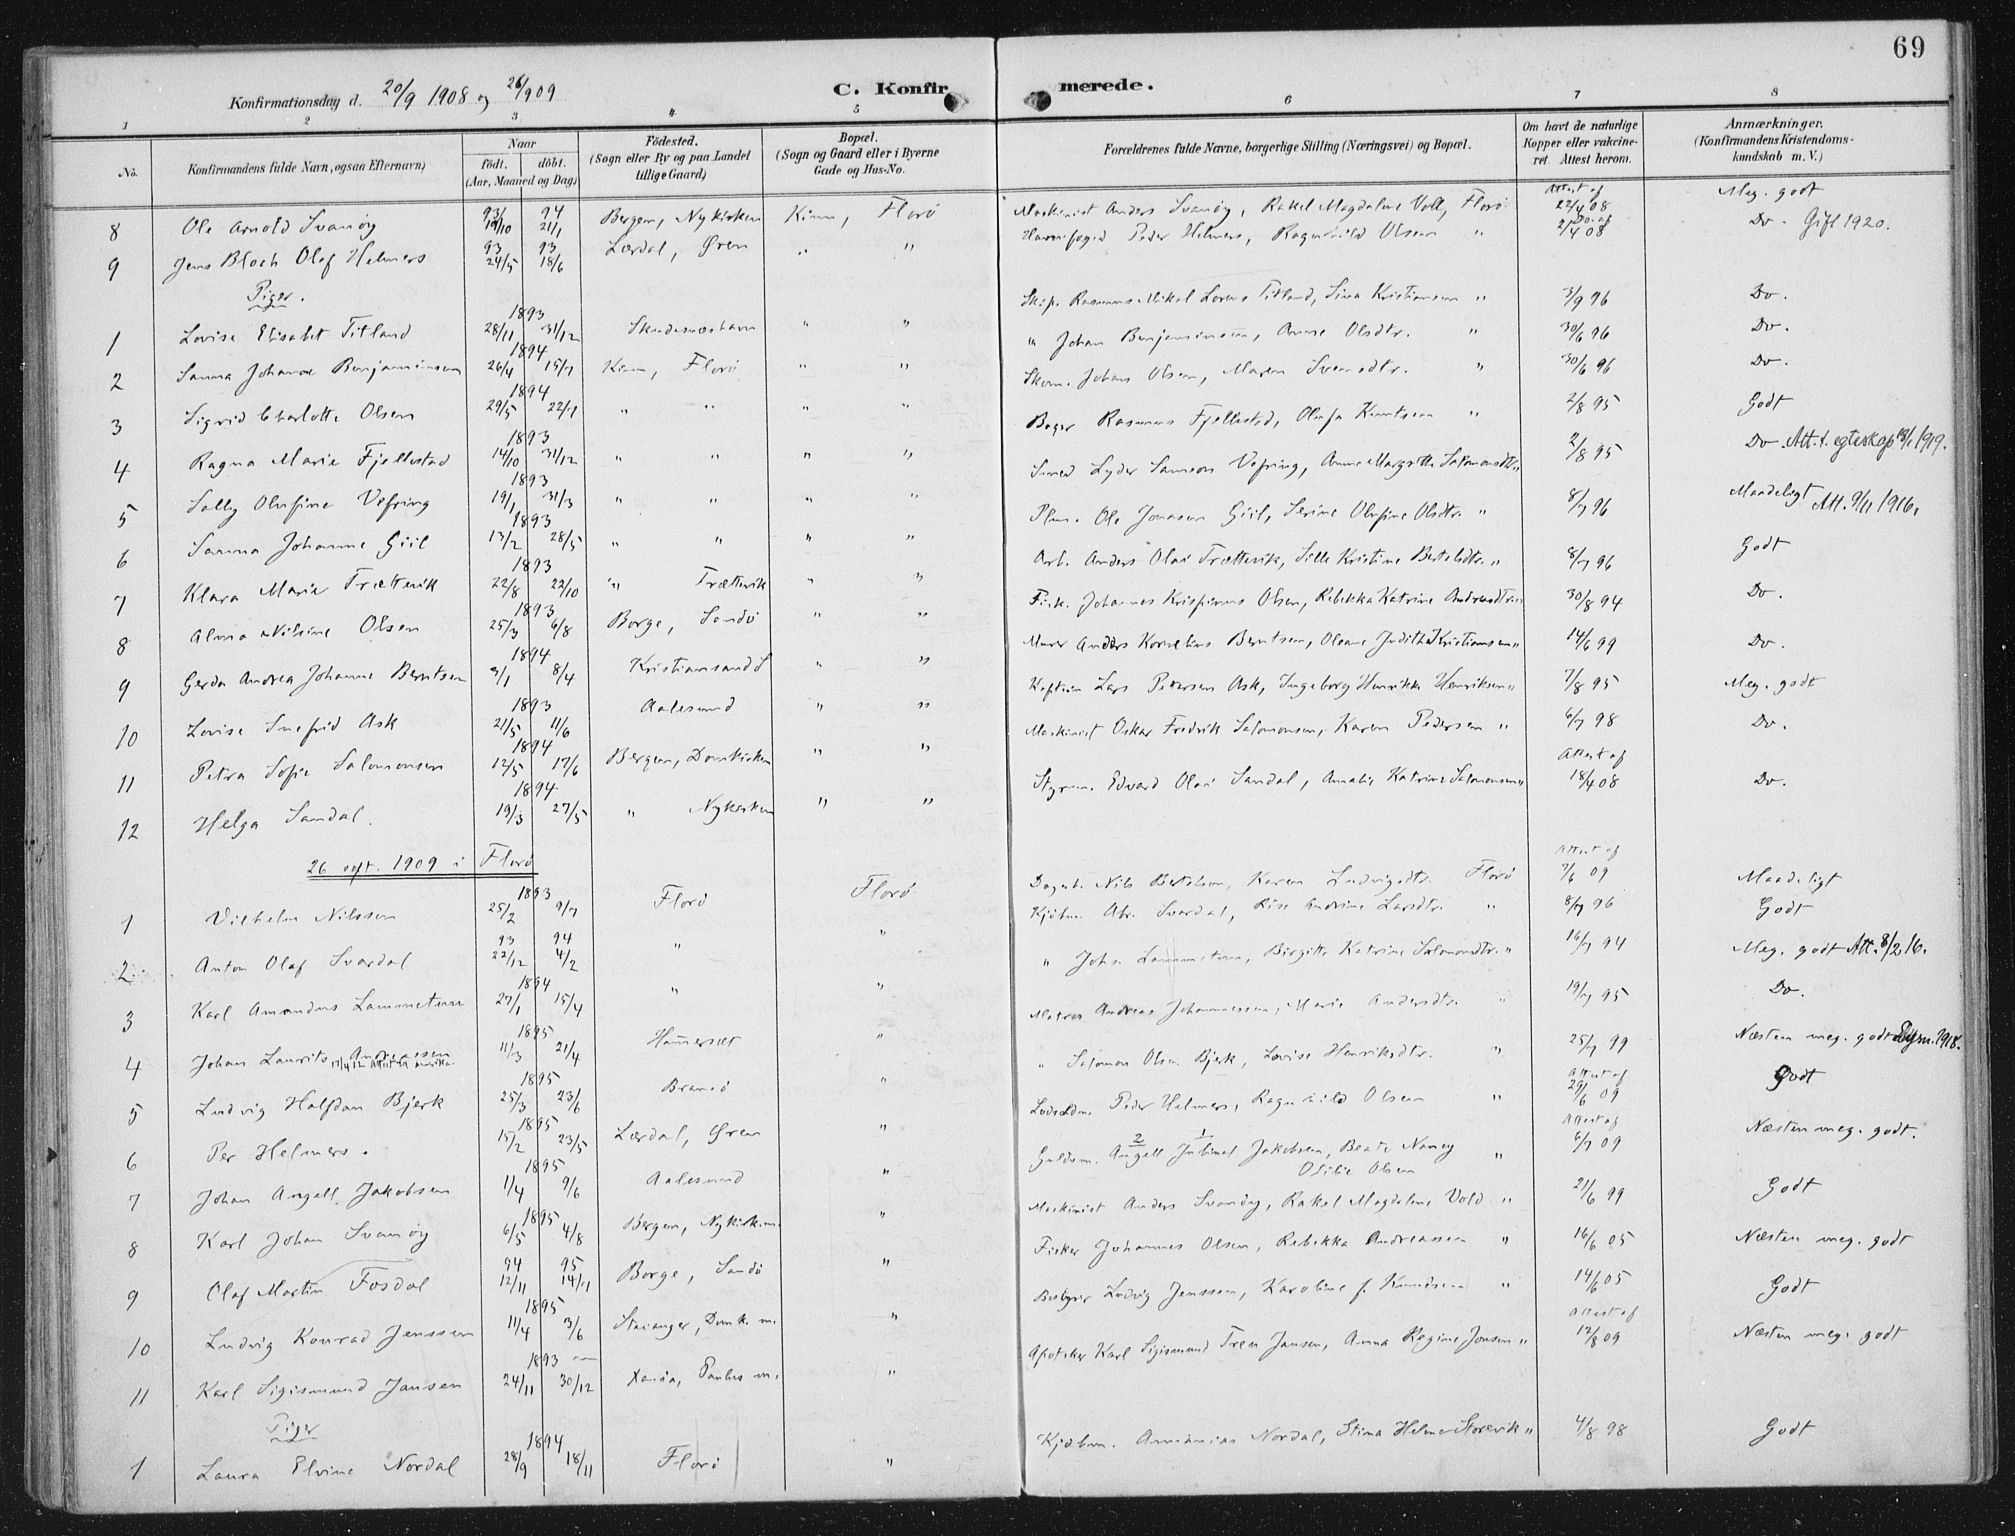 69
Konfirmationsdag d. 20/9 1908 og 26/9 09
C. Konfirmerede.
1 2 3 4 5 6 7 8
No. Konfirmandens fulde Navn, ogsaa Efternavn) Naar født. døbt. (Aar, Maaned og Dag) Fødested. (Sogn eller By og paa Landet tillige Gaard) Bopæl. (Sogn og Gaard eller i Byerne Gade og Hus-No. Forældrenes fulde Navne, borgerlige Stilling (Næringsvei) og Bopæl. Om havt de naturlige Kopper eller vakcineret. Attest herom. Anmærkninger. (Konfirmandens Kristendomskundskab m. V.)
8 Ole Arnold Svanøy 93 94 21/1 Bergen, Nykirken Kinn, Florø Maskinist Anders Svanøy, Rakel Magdalene Voll, Florø Attest af 22/4 08 Meg. godt
9 Jens Bloch Olaf Helmers 93 24/5 93 18/6 Lærdal, Øren " " Havnefoged Peder Helmers, Ragnhild Olsen " Do. af 2/4 08 Do. Gift 1920.
Piger.
1 Lovise Elisabet Titland 1893 28/11 31/12 Skudesneshavn " " Skip. Rasmus Mikal Lorens Titland, Sina Kristiansen " 3/9 96 Do.
2 Sanna Johanne Benjaminsen 1894 26/4 15/7 Kinn, Florø " " " Johan Benjaminsen, Anne Olsdtr. " 30/6 96 Do.
3 Sigrid Charlotte Olsen 1894 29/5 22/7 " " " " Skom. Johans Olsen, Maren Svensdtr. " 30/6 96 Do.
4 Ragna Marie Fjellestad 1893 14/10 31/12 " " " " Bager Rasmus Fjellestad, Olufa Knutsen " 2/8 95 Godt
5 Sally Olufine Vefring 1893 19/1 31/3 " " " " Smed Lyder Samson Vefring, Anne Margrethe Salomonsdtr. " 2/8 95 Do. Att. t. egteskap 18/1 1919.
6 Sanna Johanne Giil 1893 13/2 28/5 " " " " Ole Jonasen Giil, Serine Olufine Olsdtr. " 8/7 96 Maadeligt Att. 9/11 1916.
7 Klara Marie Trættevik 1893 22/8 22/10 " Trættevik " " Arb. Anders Olai Trættevik, Sille Kristine Bertelsdtr. " 8/7 96 Godt
8 Alma Nilsine Olsen 1893 25/3 6/8 Borge, Sandø " " Fisk. Johannes Krispinus Olsen, Rebekka Katrine Andreasdtr. " 30/8 94 Do.
9 Gerda Andrea Johanne Berntsen 1894 3/1 8/4 Kristiansand S " " Murer Anders Kornelius Berntsen, Oleane Judithe Kristiansen " 14/6 99 Do.
10 Lovise Snefrid Ask 1893 21/5 11/6 Aalesund " " Kaptein Lars Petersen Ask, Ingeborg Henrikke Henriksen " 7/8 95 Meg. godt
11 Petra Sofie Salomonsen 1894 12/5 17/6 Bergen, Domkirken " " Maskinist Oskar Fredrik Salomonsen, Karen Pedersen " 6/7 98 Do.
12 Helga Sandal. 1894 19/3 27/5 " Nykirken " " Styrm. Edvard Olai Sandal, Annalie Katrine Salomonsen " Attest af 18/4 08 Do.
26 sept. 1909 i Florø
1 Vilhelm Nilssen 1893 25/2 9/7 Florø Florø Nils Bertelsen, Karen Ludvigsdtr. Florø Attest af 7/6 09 Maadeligt
2 Anton Olaf Svardal 93 22/12 94 4/2 " " Kjøbm. Abr. Svardal, Rise Andrine Larsdtr. " 8/7 96 Godt
3 Karl Amandus Lammetun 1894 27/1 15/4 " " " Johs. Lammetun, Birgitte Katrine Salomonsdtr. " 16/7 94 Meg. godt Att. 8/2 16.
4 Johan Laurits Andreassen 1895 11/3 21/4 Hammerset " Matros Andreas Johannessen, Marie Andersdtr. " 19/7 95 Do.
5 Ludvig Halfdan Bjerk 1895 25/3 23/6 Brandsø " " Salomon Olsen Bjerk, Lovise Henriksdtr. " 25/7 99 Næsten meg. godt 1918.
6 Per Helmers. 1895 15/2 23/5 Lærdal, Øren " Peder Helmers, Ragnhild Olsen " Attest af 29/6 09 Godt
7 Johan Angell Jakobsen 1895 1/4 9/6 Aalesund " Guldsm. Angell Jakobsen, Beate Nancy Otilie Olsen " Attest af 6/7 09 Næsten meg. godt.
8 Karl Johan Svanøy 1895 6/5 4/8 Bergen, Nykirk.m. " Maskinist Anders Svanøy, Rakel Magdalene Vold " 21/6 99 Godt
9 Olaf Martin Fosdal 94 12/11 95 14/7 Borge, Sandø " Fisker Johannes Olsen, Rebekka Andreassen " 16/6 05 Næsten meg. godt
10 Ludvig Konrad Jenssen 1895 11/4 3/6 Stavanger, Domk. m. " Ludvig Jenssen, Karoline f. Knudsen " 14/6 05 Godt
11 Karl Sigismund Jansen 1893 24/11 30/12 Xania, Paulus m. " Apotheker Karl Sigismund Jansen, Anna Regine Jonsen " Attest af 12/8 09 Næsten meg. godt
Piger
1 Laura Elvine Nordal 1894 28/9 18/11 Florø " Kjøbm. Annanias Nordal, Stina Helene Storevik " 4/8 98 Godt